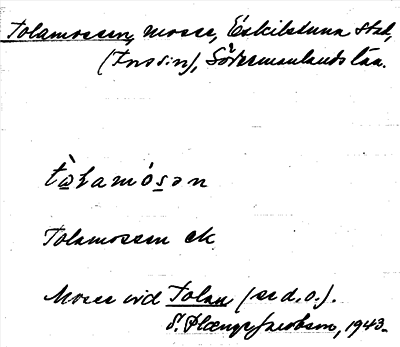 Tolamossen, mosse, Eskilstuna stad,
(Torsin), Södermanlands län.
tὼlamósən
Tolamossen ek
Mosse vid Tolan (se d.o.).
S. Plænge Jacobson, 1943.